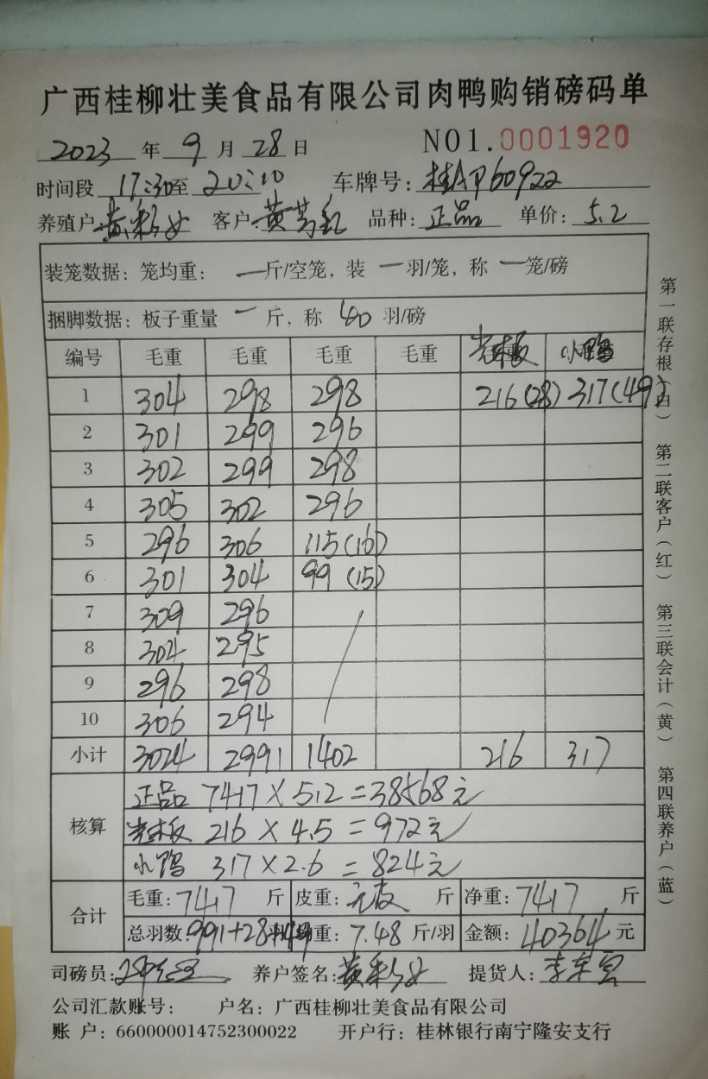 广西桂柳壮美食品有限公司肉鸭购销磅码单
2023 年 9 月 28 日 NO1.0001920
时间段 17:30至 20:10 车牌号: 桂AP60922
养殖户: 黄彩女 客户: 黄 品种: 正品 单价: 5.2
装笼数据: 笼均重: 一斤/空笼, 装 一羽/笼, 称 一笼/磅
捆脚数据: 板子重量 一 斤, 称 40 羽/磅
编号 毛重 毛重 毛重 毛重 光板 小鸭
1 304 298 298 216(28) 317(49)
2 301 299 296
3 302 299 298
4 305 302 296
5 296 306 115(16)
6 301 304 99 (15)
7 309 296
8 304 295
9 296 298
10 306 294
小计 3024 2991 1402 216 317
核算
正品 7417 × 5.2 = 38568元
光板 216 × 4.5 = 972元
小鸭 317×2.6 = 824元
合计
毛重: 7417 斤 皮重: 无皮 斤 净重: 7417 斤
总羽数: 991+28+49 均重: 7.48 斤/羽 金额: 40364 元
司磅员: 养户签名: 黄彩女 提货人: 李
公司汇款账号: 户名: 广西桂柳壮美食品有限公司
账 户: 660000014752300022 开户行: 桂林银行南宁隆安支行
第一联存根(白) 第二联客户(红) 第三联会计(黄) 第四联养户(蓝)